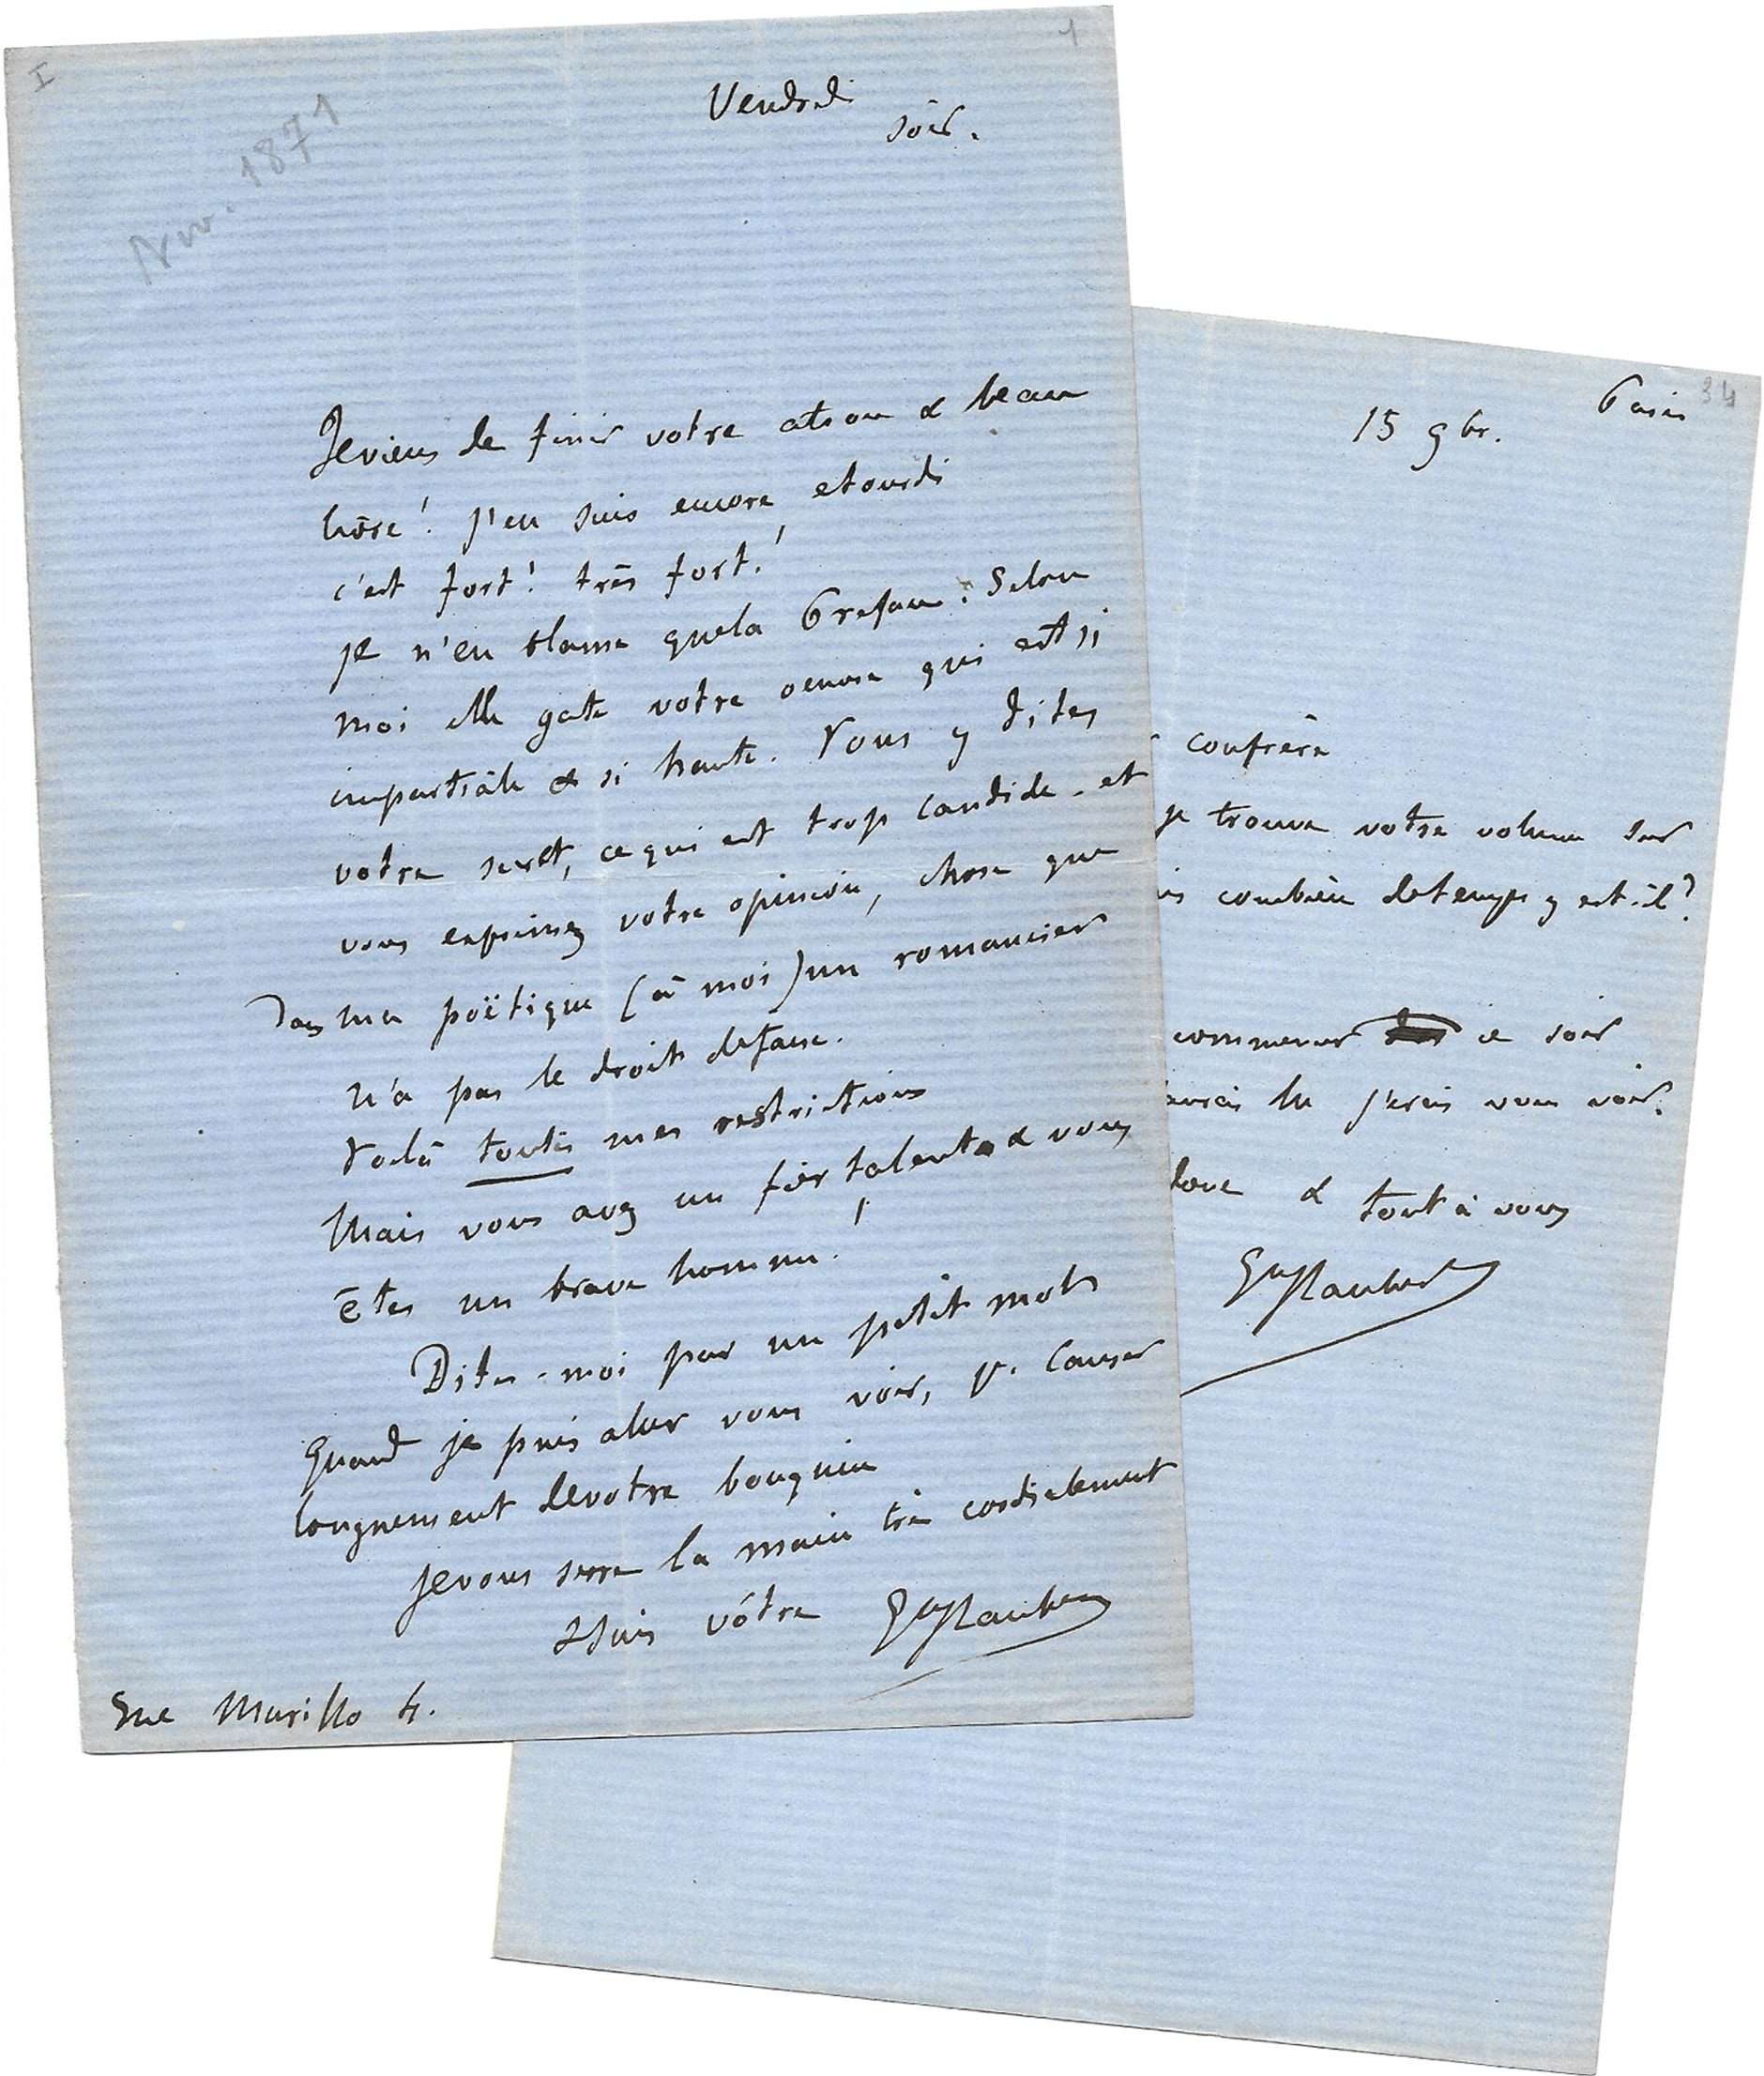 I
1
Nov. 1871
Vendredi
soir.
Je viens de finir votre atroce & beau
livre! J'en suis encore etourdi
c'est fort! très fort!
je n'en blame que la Preface. Selon
moi elle gate votre oeuvre qui est si
impartiale & si haute. Vous y dites
votre secret, ce qui est trop candide - et
vous exprimez votre opinion, chose que
dans ma poëtique (à moi) un romancier
n'a pas le droit de faire.
Voilà toutes mes restrictions
Mais vous avez un fier talent & vous
Êtes un brave homme!
Dites-moi par un petit mot
quand je puis aller vous voir, pr. causer
longuement de votre bouquin
je vous serre la main très cordialement
& suis vôtre GveFlaubert
Rue Murillo 4.
34
Paris
15 9br.
confrère
je trouve votre volume sur
is combien de temps y est-il?
commencer ce soir
aurai lu j'irai vous voir.
donc & tout à vous
GveFlaubert